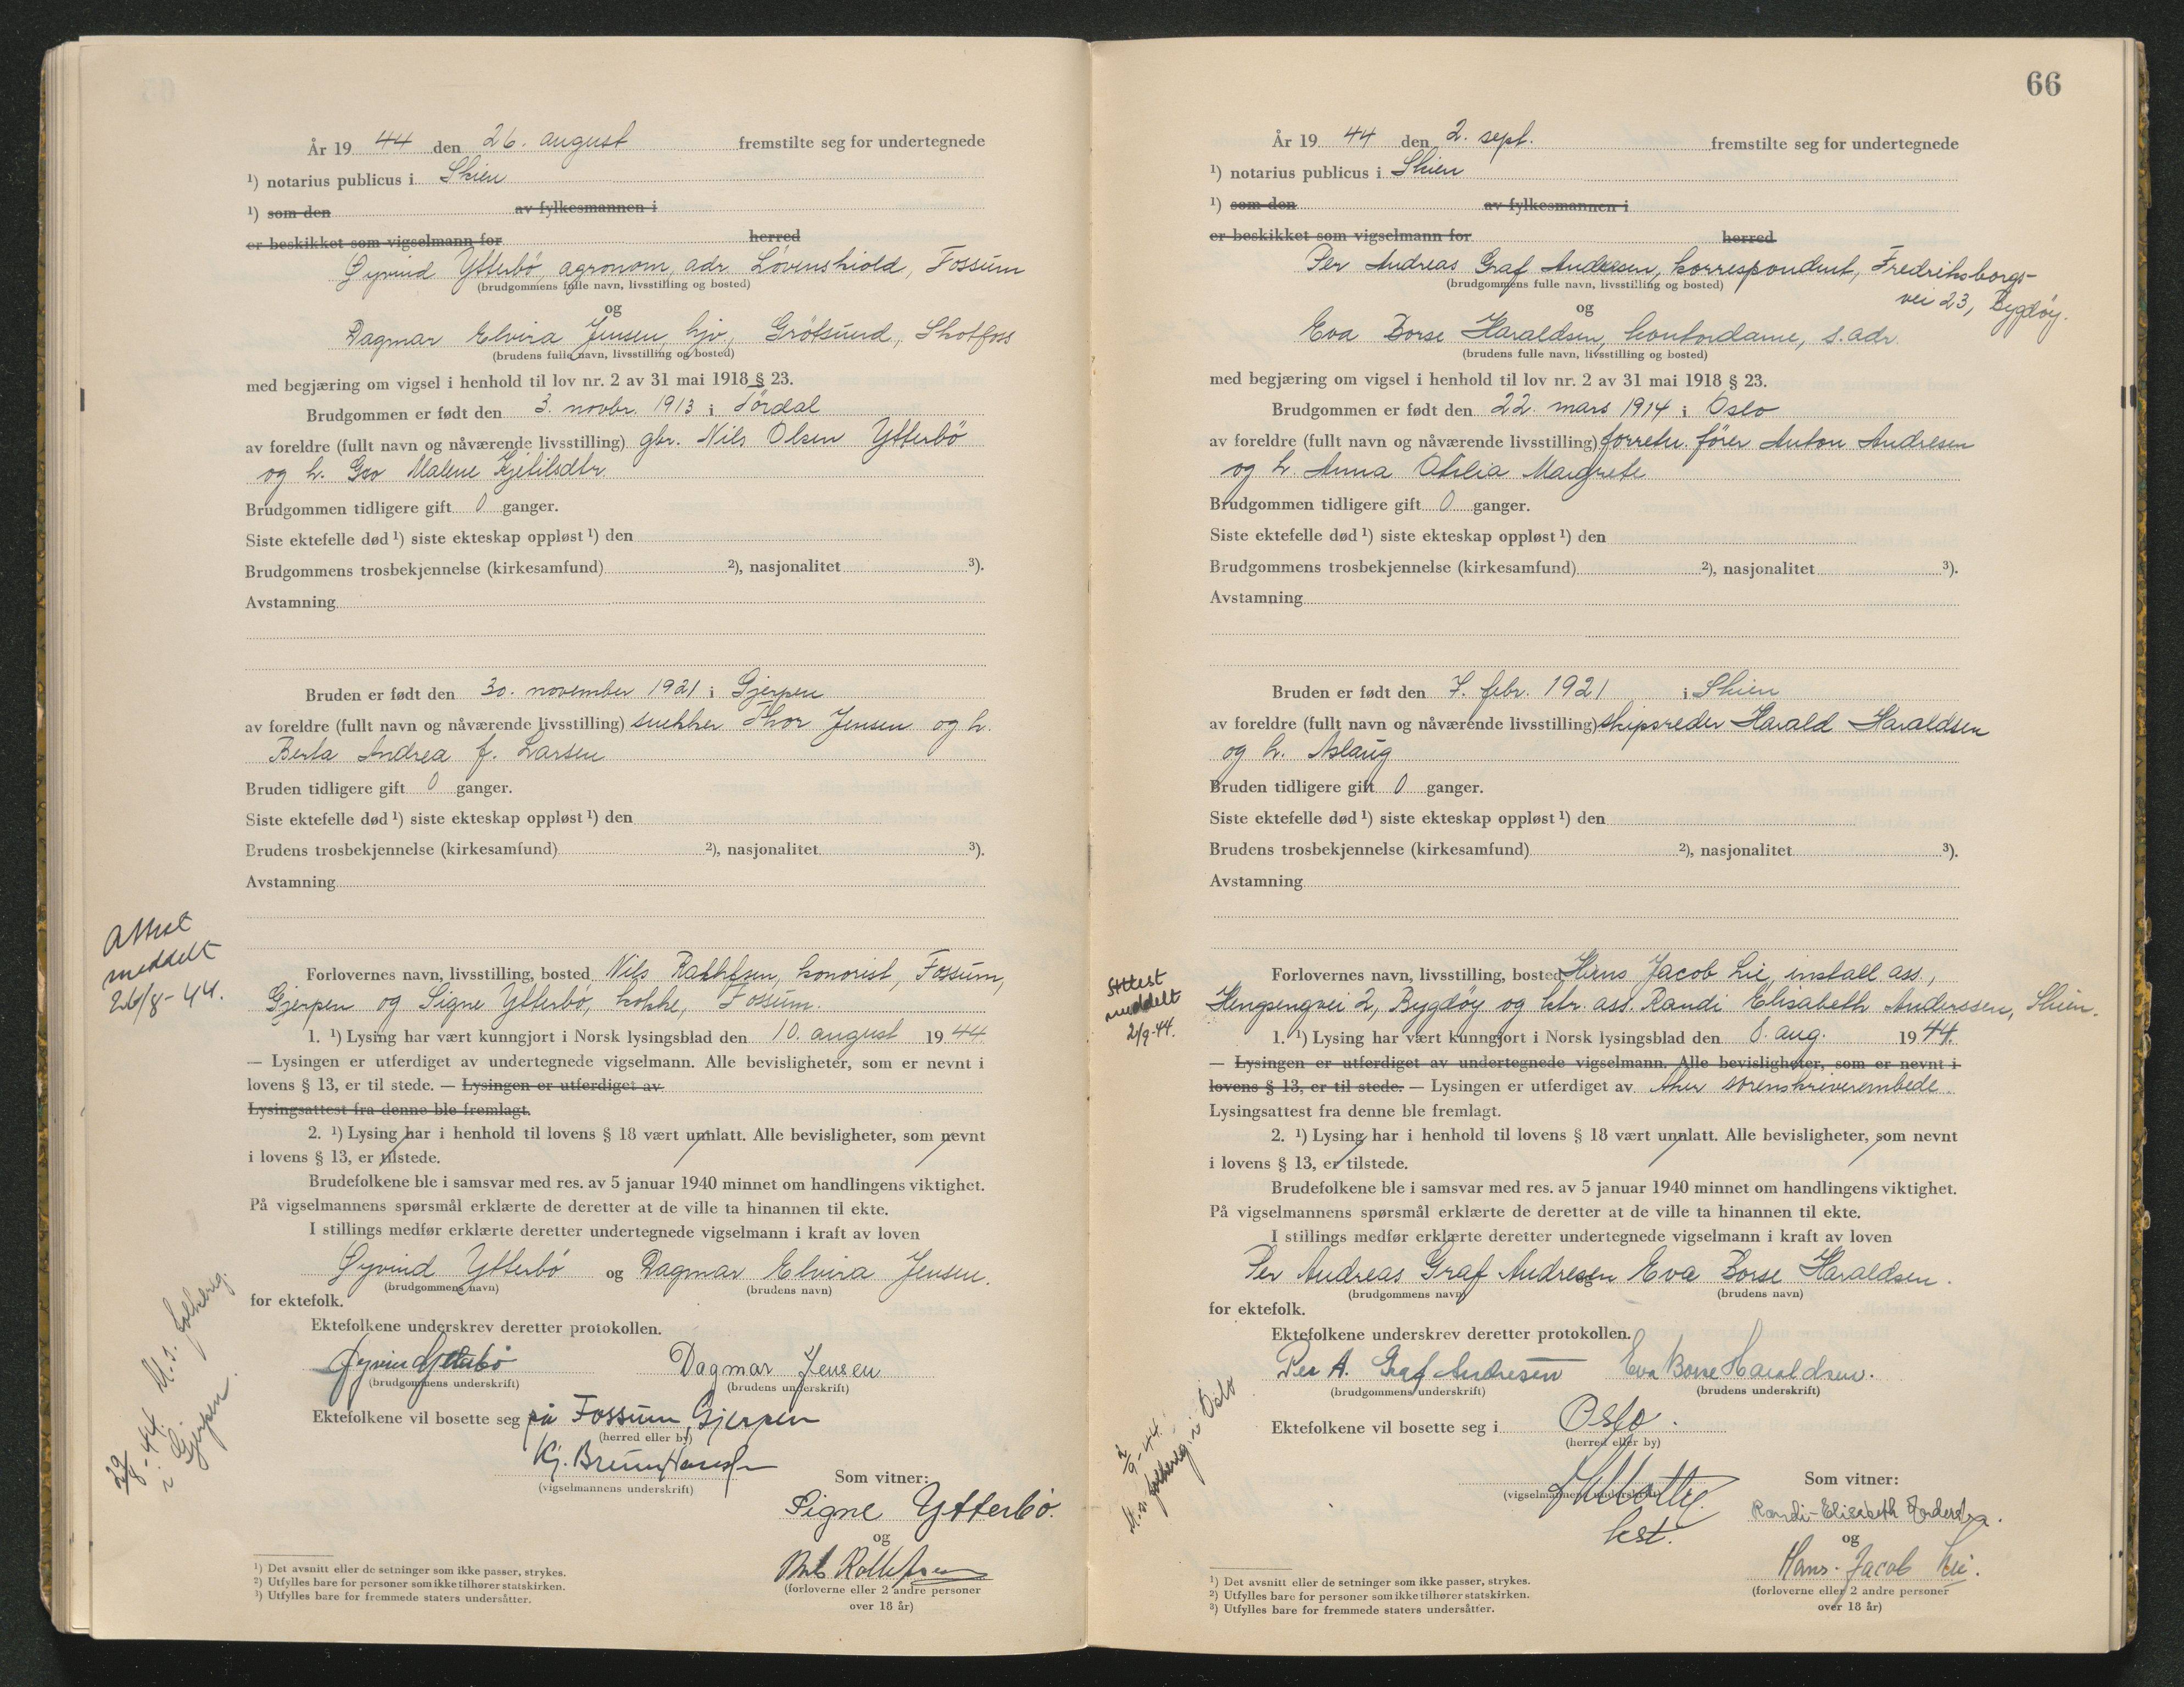 År 19 44 den 26. august fremstilte seg for undertegnede
¹) notarius publicus i Skien
¹) som den av fylkesmannen i
er beskikket som vigselmann for herred
Øyvind Ytterbö, agronom, adr. Lövenskiold, Fossum
(brudgommens fulle navn, livsstilling og bosted)
og
Dagmar Elvira Jensen, hjv., Grötsund, Skotfoss
(brudens fulle navn, livsstilling og bosted)
med begjæring om vigsel i henhold til lov nr. 2 av 31 mai 1918 § 23.
Brudgommen er født den 3. novbr. 1913 i Tördal
av foreldre (fullt navn og nåværende livsstilling) gbr. Nils Olsen Ytterbö
og h. Gro Malene Kjetilsdtr.
Brudgommen tidligere gift 0 ganger.
Siste ektefelle død ¹) siste ekteskap oppløst ¹) den
Brudgommens trosbekjennelse (kirkesamfund) ²), nasjonalitet ³).
Avstamning
Bruden er født den 30. november 1921 i Gjerpen
av foreldre (fullt navn og nåværende livsstilling) snekker Thor Jensen og h.
Berta Andrea f. Larsen
Bruden tidligere gift 0 ganger.
Siste ektefelle død ¹) siste ekteskap oppløst ¹) den
Brudens trosbekjennelse (kirkesamfund) ²), nasjonalitet ³).
Avstamning
Attest
meddelt
26/8-44.
Forlovernes navn, livsstilling, bosted Nils Rollefsen, Fossum,
Gjerpen og Signe Ytterbö, kokke, Fossum.
1. ¹) Lysing har vært kunngjort i Norsk lysingsblad den 10. august 19 44
— Lysingen er utferdiget av undertegnede vigselmann. Alle bevisligheter, som er nevnt i
lovens § 13, er til stede. — Lysingen er utferdiget av
Lysingsattest fra denne ble fremlagt.
2. ¹) Lysing har i henhold til lovens § 18 vært unnlatt. Alle bevisligheter, som nevnt
i lovens § 13, er tilstede.
Brudefolkene ble i samsvar med res. av 5 januar 1940 minnet om handlingens viktighet.
På vigselmannens spørsmål erklærte de deretter at de ville ta hinannen til ekte.
I stillings medfør erklærte deretter undertegnede vigselmann i kraft av loven
Øyvind Ytterbö og Dagmar Elvira Jensen.
(brudgommens navn) (brudens navn)
for ektefolk.
Ektefolkene underskrev deretter protokollen.
Øyvind Ytterbö Dagmar Jensen
(brudgommens underskrift) (brudens underskrift)
Ektefolkene vil bosette seg på Fossum, Gjerpen
(herred eller by)
29/8-44. M.s. folkereg.
i Gjerpen.
Kj. Bruun Hanssen
(vigselmannens underskrift)
Som vitner:
Signe Ytterbö.
og
Nils Rollefsen
(forloverne eller 2 andre personer
over 18 år)
¹) Det avsnitt eller de setninger som ikke passer, strykes.
²) Utfylles bare for personer som ikke tilhører statskirken.
³) Utfylles bare for fremmede staters undersåtter.
66
År 19 44 den 2. sept. fremstilte seg for undertegnede
¹) notarius publicus i Skien
¹) som den av fylkesmannen i
er beskikket som vigselmann for herred
Per Andreas Graf Andresen, korrespondent, Fredriksborgs-
(brudgommens fulle navn, livsstilling og bosted)
vei 23, Bygdøy.
og
Eva Borse Haraldsen, kontordame, s. adr.
(brudens fulle navn, livsstilling og bosted)
med begjæring om vigsel i henhold til lov nr. 2 av 31 mai 1918 § 23.
Brudgommen er født den 22. mars 1914 i Oslo
av foreldre (fullt navn og nåværende livsstilling) forretn. förer Anton Andresen
og h. Anna Otilia Margrete
Brudgommen tidligere gift 0 ganger.
Siste ektefelle død ¹) siste ekteskap oppløst ¹) den
Brudgommens trosbekjennelse (kirkesamfund) ²), nasjonalitet ³).
Avstamning
Bruden er født den 7. febr. 1921 i Skien
av foreldre (fullt navn og nåværende livsstilling) skipsreder Harald Haraldsen
og h. Aslaug
Bruden tidligere gift 0 ganger.
Siste ektefelle død ¹) siste ekteskap oppløst ¹) den
Brudens trosbekjennelse (kirkesamfund) ²), nasjonalitet ³).
Avstamning
Attest
meddelt
2/9-44.
Forlovernes navn, livsstilling, bosted Hans Jacob Lie, install. ass.,
Hengsengvei 2, Bygdøy og ktr. ass. Randi Elisabeth Anderssen, Skien.
1. ¹) Lysing har vært kunngjort i Norsk lysingsblad den 8. aug. 19 44.
— Lysingen er utferdiget av undertegnede vigselmann. Alle bevisligheter, som er nevnt i
lovens § 13, er til stede. — Lysingen er utferdiget av Aker sorenskriverembede.
Lysingsattest fra denne ble fremlagt.
2. ¹) Lysing har i henhold til lovens § 18 vært unnlatt. Alle bevisligheter, som nevnt
i lovens § 13, er tilstede.
Brudefolkene ble i samsvar med res. av 5 januar 1940 minnet om handlingens viktighet.
På vigselmannens spørsmål erklærte de deretter at de ville ta hinannen til ekte.
I stillings medfør erklærte deretter undertegnede vigselmann i kraft av loven
Per Andreas Graf Andresen Eva Borse Haraldsen.
(brudgommens navn) (brudens navn)
for ektefolk.
Ektefolkene underskrev deretter protokollen.
Per A. Graf Andresen Eva Borse Haraldsen.
(brudgommens underskrift) (brudens underskrift)
Ektefolkene vil bosette seg i Oslo.
(herred eller by)
2/9-44.
M.s. folkereg. i Oslo
(vigselmannens underskrift)
kst.
Som vitner:
Randi-Elisabeth Anderssen.
og
Hans-Jacob Lie.
(forloverne eller 2 andre personer
over 18 år)
¹) Det avsnitt eller de setninger som ikke passer, strykes.
²) Utfylles bare for personer som ikke tilhører statskirken.
³) Utfylles bare for fremmede staters undersåtter.